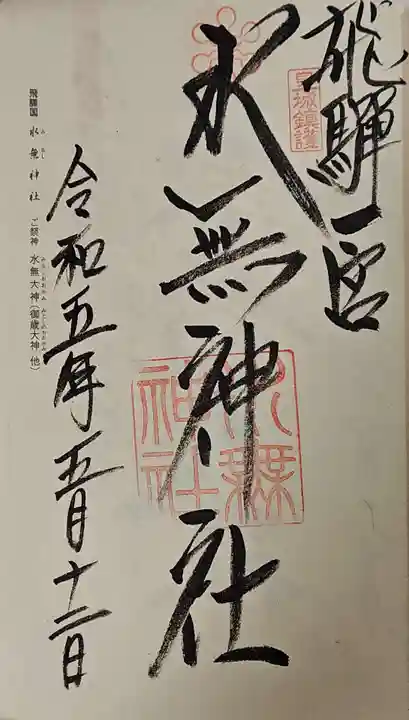 飛騨一宮
皇城鎮護
水無神社
水無神社
令和五年五月十二日
飛騨国 水無神社 ご祭神 水無大神(御歳大神 他)